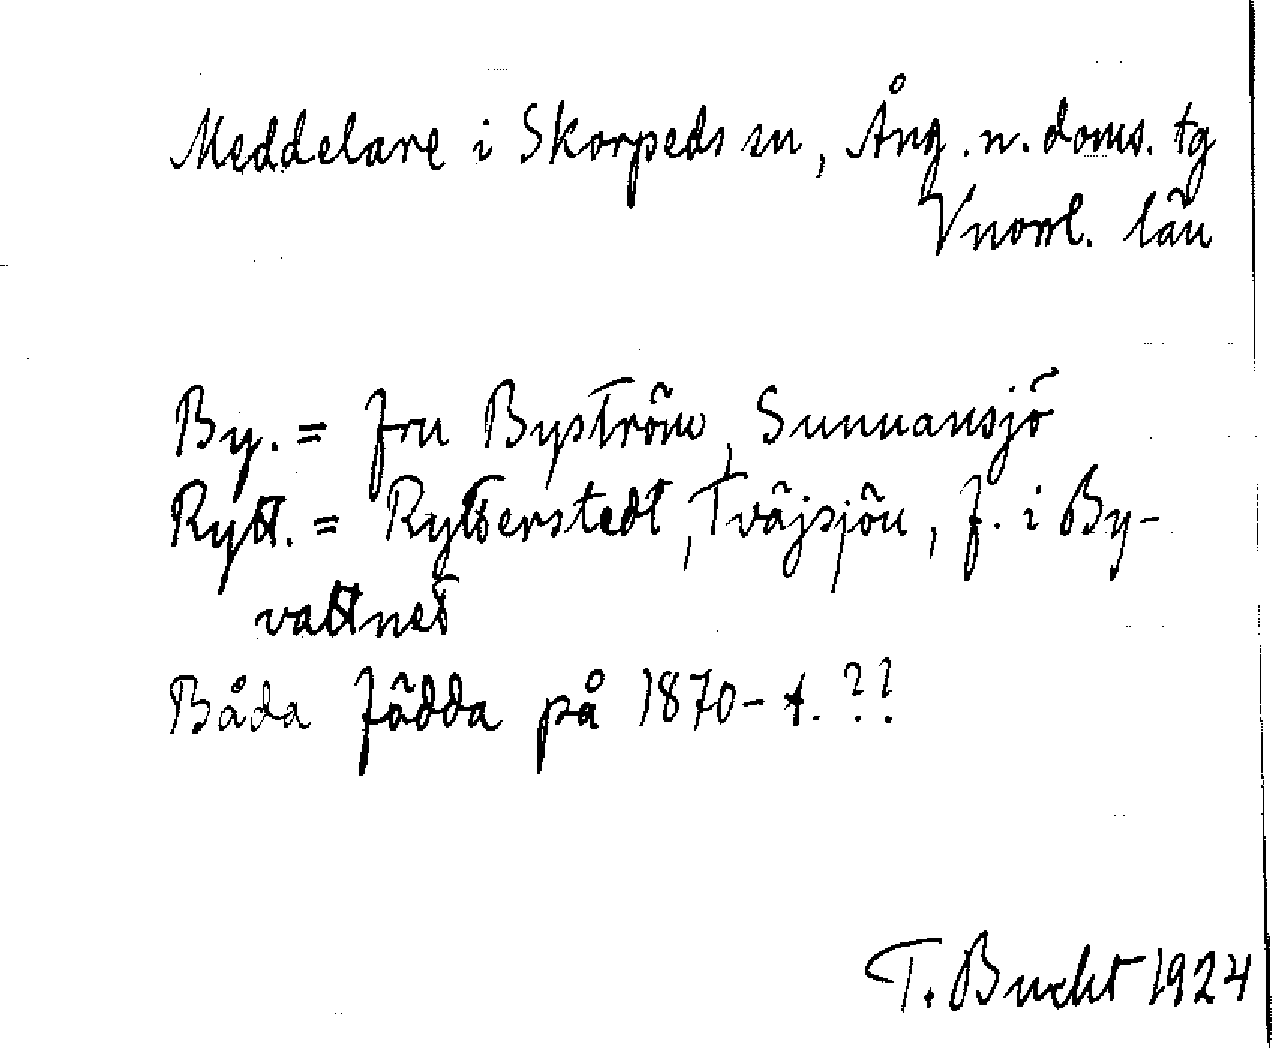 Meddelare i Skorpeds sn, Ång. n. doms. tg
Vnorrl. län
By. = fru Byström, Sunnansjö
Rytt. = Rytterstedt, Tväjsjön, f. i By-
vattnet
Båda födda på 1870-t. ??
T. Bucht 1924